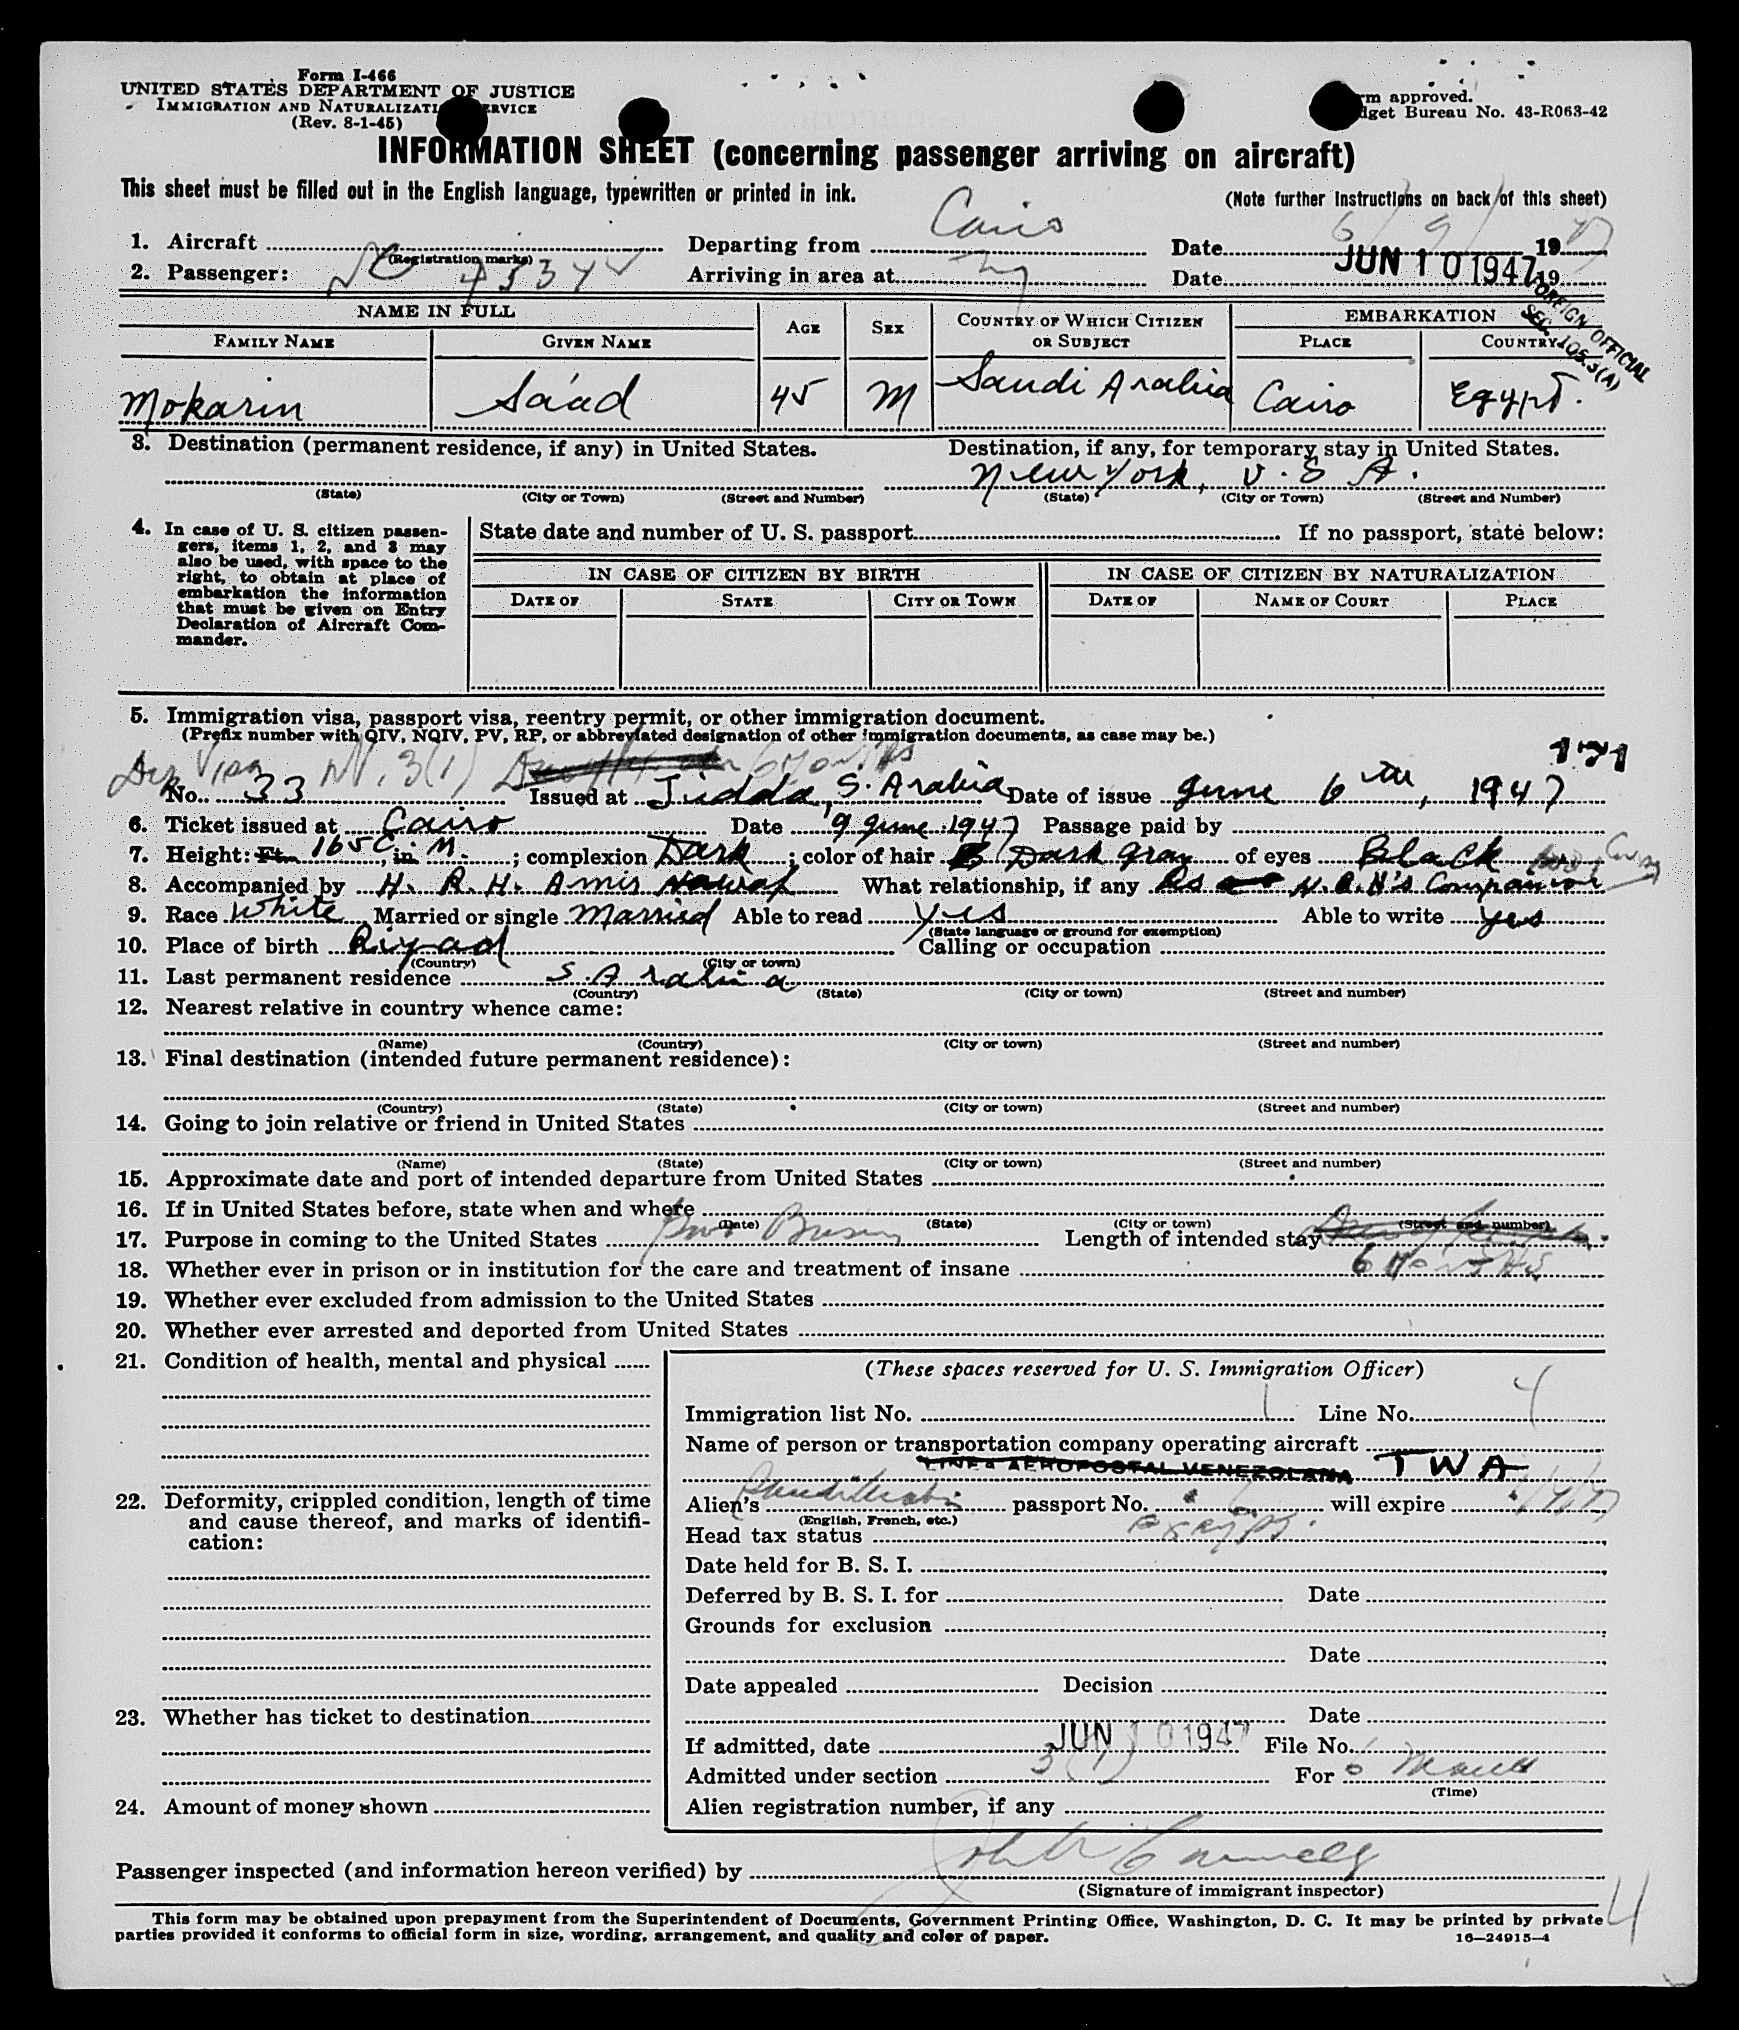 Form I-466
UNITED STATES DEPARTMENT OF JUSTICE
IMMIGRATION AND NATURALIZATI ERVICE
(Rev. 8-1-45)
rm approved.
dget Bureau No. 43-R063-42
INFORMATION SHEET (concerning passenger arriving on aircraft)
This sheet must be filled out in the English language, typewritten or printed in ink.
(Note further instructions on back of this sheet)
1. Aircraft Departing from Cairo Date 6/9/ 1947
(Registration marks)
2. Passenger: Arriving in area at NY Date JUN 10 1947 19
FOREIGN OFFICIAL
SEC. 105.3(A)
NAME IN FULL AGE SEX COUNTRY OF WHICH CITIZEN OR SUBJECT EMBARKATION
FAMILY NAME GIVEN NAME PLACE COUNTRY
Mokarin Sa'ad 45 M Saudi Arabia Cairo Egypt.
3. Destination (permanent residence, if any) in United States. Destination, if any, for temporary stay in United States.
New York, U.S A.
(State) (City or Town) (Street and Number) (State) (City or Town) (Street and Number)
4. In case of U. S. citizen passen-
gers, items 1, 2, and 3 may
also be used, with space to the
right, to obtain at place of
embarkation the information
that must be given on Entry
Declaration of Aircraft Com-
mander.
State date and number of U. S. passport If no passport, state below:
IN CASE OF CITIZEN BY BIRTH IN CASE OF CITIZEN BY NATURALIZATION
DATE OF STATE CITY OR TOWN DATE OF NAME OF COURT PLACE
5. Immigration visa, passport visa, reentry permit, or other immigration document.
(Prefix number with QIV, NQIV, PV, RP, or abbreviated designation of other immigration documents, as case may be.)
Visa 3(1)
No. 33 Issued at Jidda, S. Arabia Date of issue June 6th, 1947
6. Ticket issued at Cairo Date 9 June 1947 Passage paid by
7. Height: Ft. 165 C, in. M. ; complexion Dark ; color of hair Dark gray of eyes Black
8. Accompanied by H. R. H. Amir Nawaf What relationship, if any As H.R.H's Companion
9. Race White Married or single Married Able to read yes Able to write yes
(State language or ground for exemption)
10. Place of birth Riyad Calling or occupation
(Country) (City or town)
11. Last permanent residence S. Arabia
(Country) (State) (City or town) (Street and number)
12. Nearest relative in country whence came:
(Name) (Country) (City or town) (Street and number)
13. Final destination (intended future permanent residence):
(Country) (State) (City or town) (Street and number)
14. Going to join relative or friend in United States
(Name) (State) (City or town) (Street and number)
15. Approximate date and port of intended departure from United States
16. If in United States before, state when and where
(Date) (State) (City or town) (Street and number)
17. Purpose in coming to the United States Length of intended stay
6 Months
18. Whether ever in prison or in institution for the care and treatment of insane
19. Whether ever excluded from admission to the United States
20. Whether ever arrested and deported from United States
21. Condition of health, mental and physical
22. Deformity, crippled condition, length of time
and cause thereof, and marks of identifi-
cation:
23. Whether has ticket to destination
24. Amount of money shown
(These spaces reserved for U. S. Immigration Officer)
Immigration list No. 1 Line No. 4
Name of person or transportation company operating aircraft
LINEA AEROPOSTAL VENEZOLANA TWA
Alien's Saudi Arabia passport No. 6 will expire
(English, French, etc.)
Head tax status exempt.
Date held for B. S. I.
Deferred by B. S. I. for Date
Grounds for exclusion
Date
Date appealed Decision
Date
If admitted, date JUN 10 1947 File No.
Admitted under section 3(1) For 6
(Time)
Alien registration number, if any
Passenger inspected (and information hereon verified) by
(Signature of immigrant inspector)
4
This form may be obtained upon prepayment from the Superintendent of Documents, Government Printing Office, Washington, D. C. It may be printed by private
parties provided it conforms to official form in size, wording, arrangement, and quality and color of paper.
16—24915-4